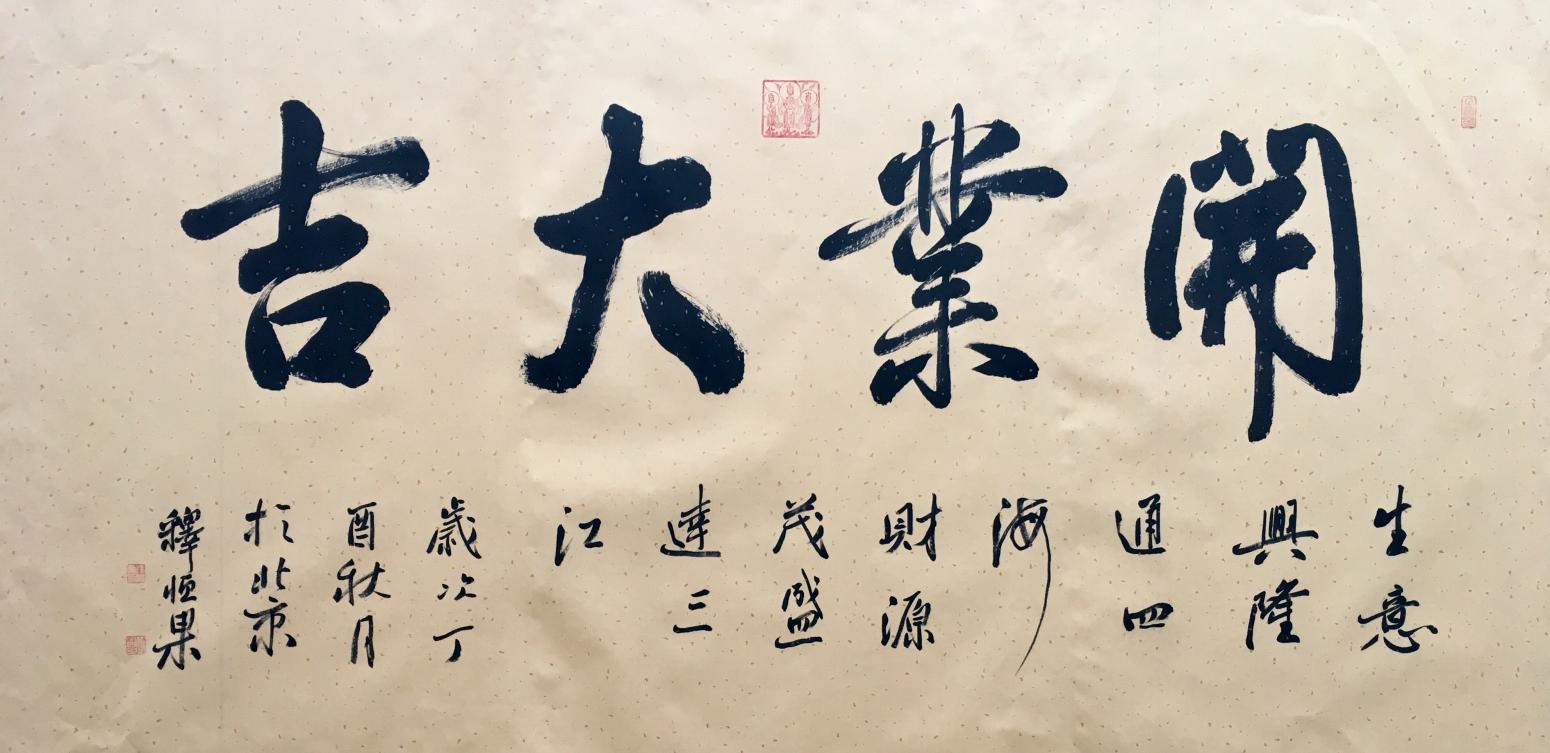 開業大吉
生意
興隆
通四
海
財源
茂盛
達三
江
歲次丁
酉秋月
於北京
釋恒果